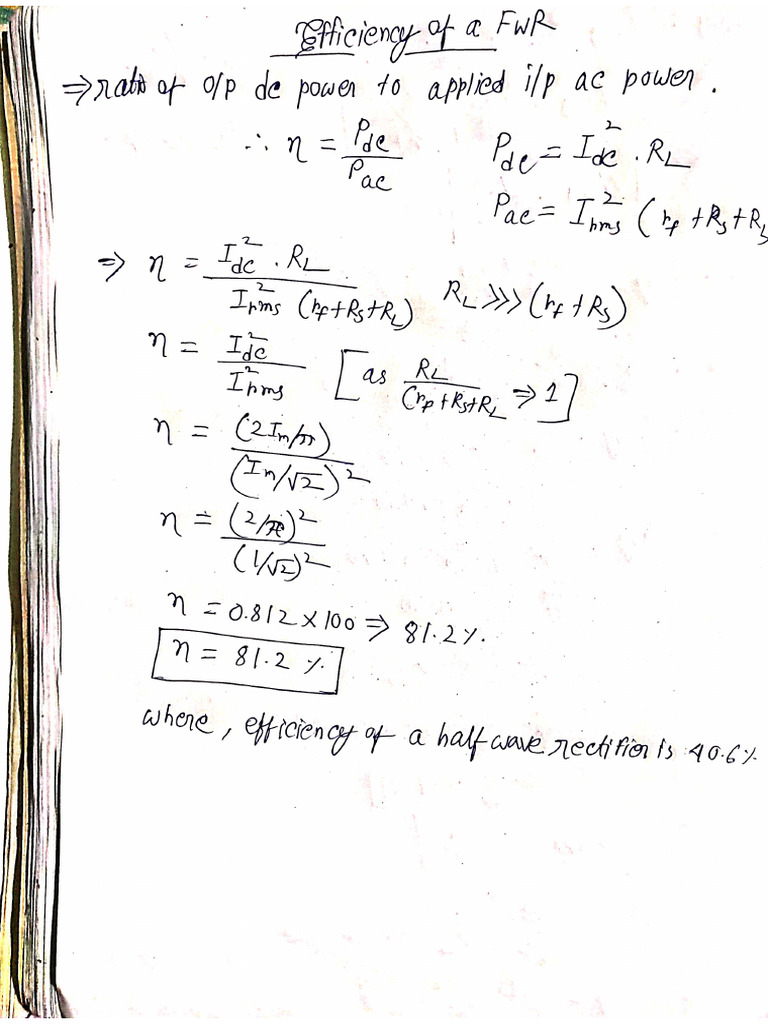 Efficiency of a FWR
⇒ ratio of o/p dc power to applied i/p ac power.
∴ η = Pdc / Pac    Pdc = Idc² . RL
Pac = Irms² (rf + Rs + RL
⇒ η = Idc² . RL / Irms² (rf + Rs + RL)    RL >>> (rf + Rs)
η = Idc² / Irms² [as RL / (rf + Rs + RL ⇒ 1]
η = (2Im/π) / (Im/√2)²
η = (2/π)² / (1/√2)²
η = 0.812 × 100 ⇒ 81.2 %.
η = 81.2 %.
where, efficiency of a half wave rectifier is 40.6 %